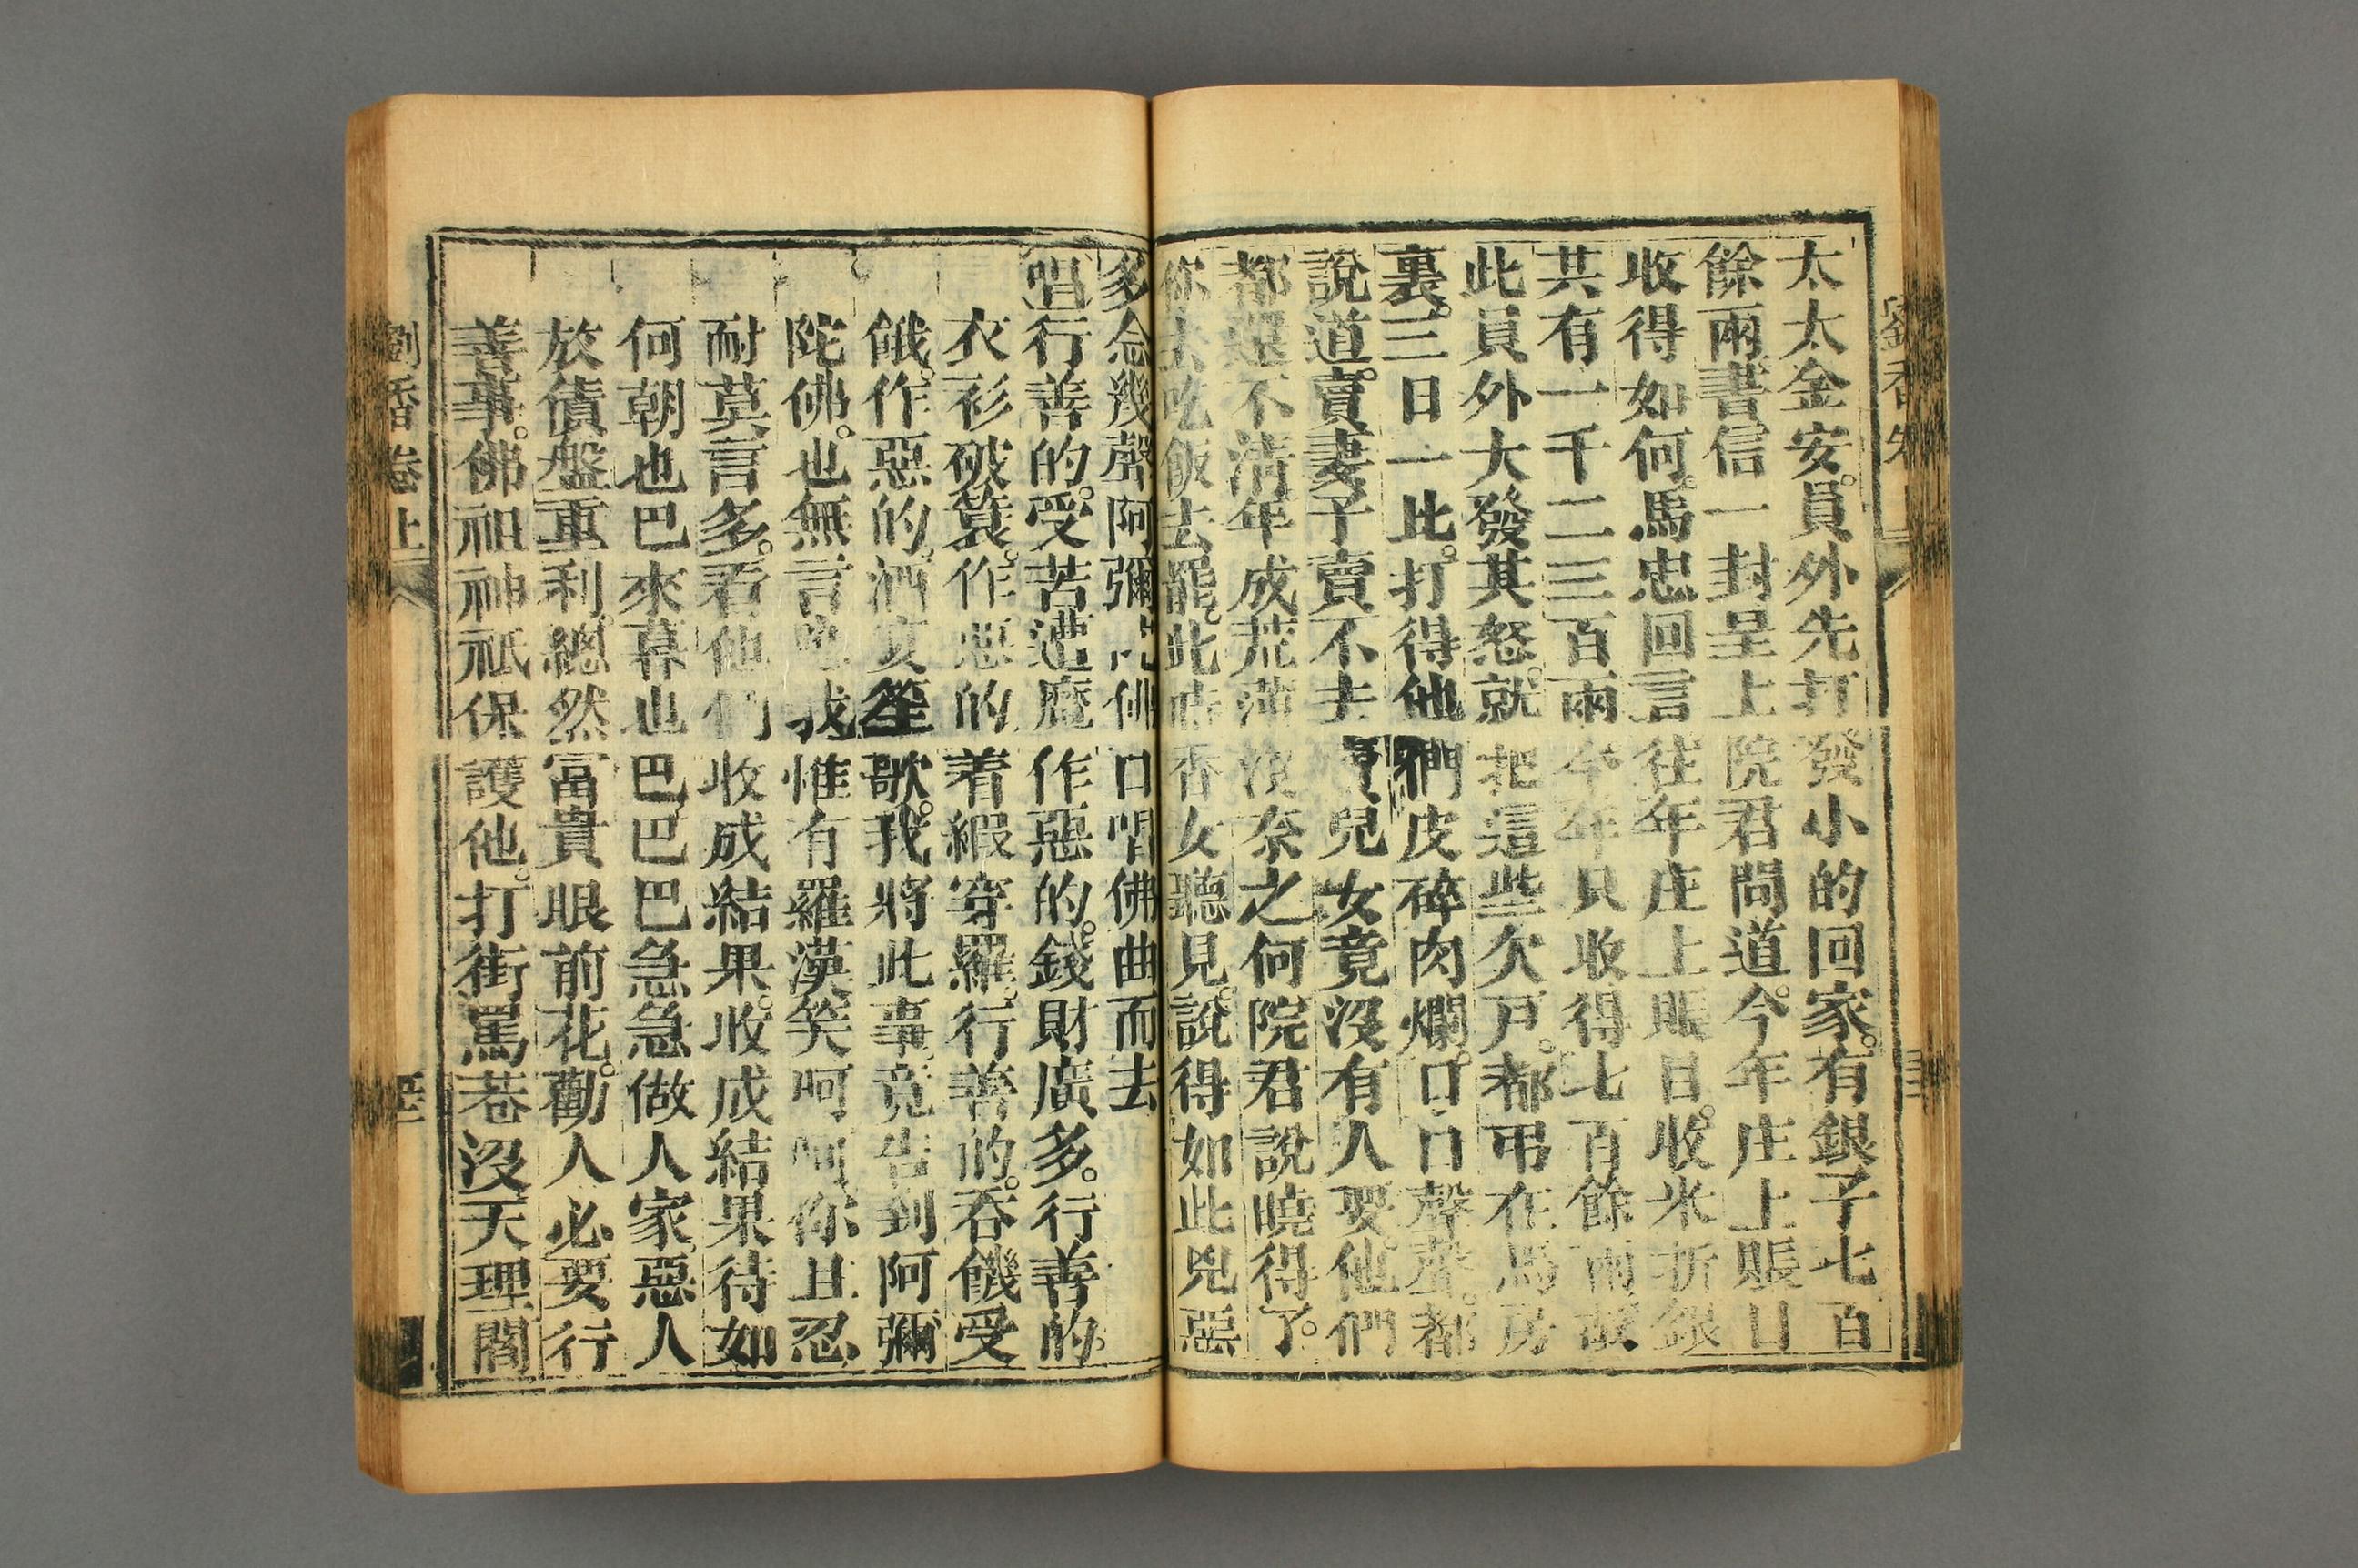 太太金安。員外先打發小的回家。有銀子七百
餘兩書信一封呈上院君問道。今年庄上賬目
收得如何。馬忠回言往年庄上賬目。收米折銀
共有一千二三百兩今年只收得七百餘兩
此員外大發其怒。就把這些欠戸。都吊在馬房
裏。三日一比。打得他們皮碎肉爛。口口聲聲。都
說道。賣妻子賣不去 兒女竟沒有人要。他們
都還不清年成荒 沒奈之何院君說曉得了。
你去吃飯去罷。此時香女聽見。說得如此兇惡
多念幾聲阿彌 佛口唱佛曲而去
唱行善的。受苦遭魔作惡的。錢財廣多。行善的。
衣衫破簑。作惡的着緞穿羅。行善的。吞饑受
餓。作惡的。酒 笙歌。我將此事。竟告到阿彌
陀佛。也無言 我惟有羅漢笑呵呵。你且忍
耐莫言多。看他們收成結果。收成結果待如
何朝也巴來暮也巴巴巴急急做人家惡人
放債盤重利。總然富貴眼前花。勸人必要行
善事。佛祖神祇保護他。打街罵巷沒天理閻
劉香卷上